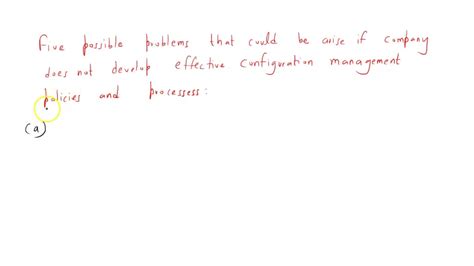 Five possible problems that could be arise if company
does not develop effective configuration management
policies and processess:
(a)